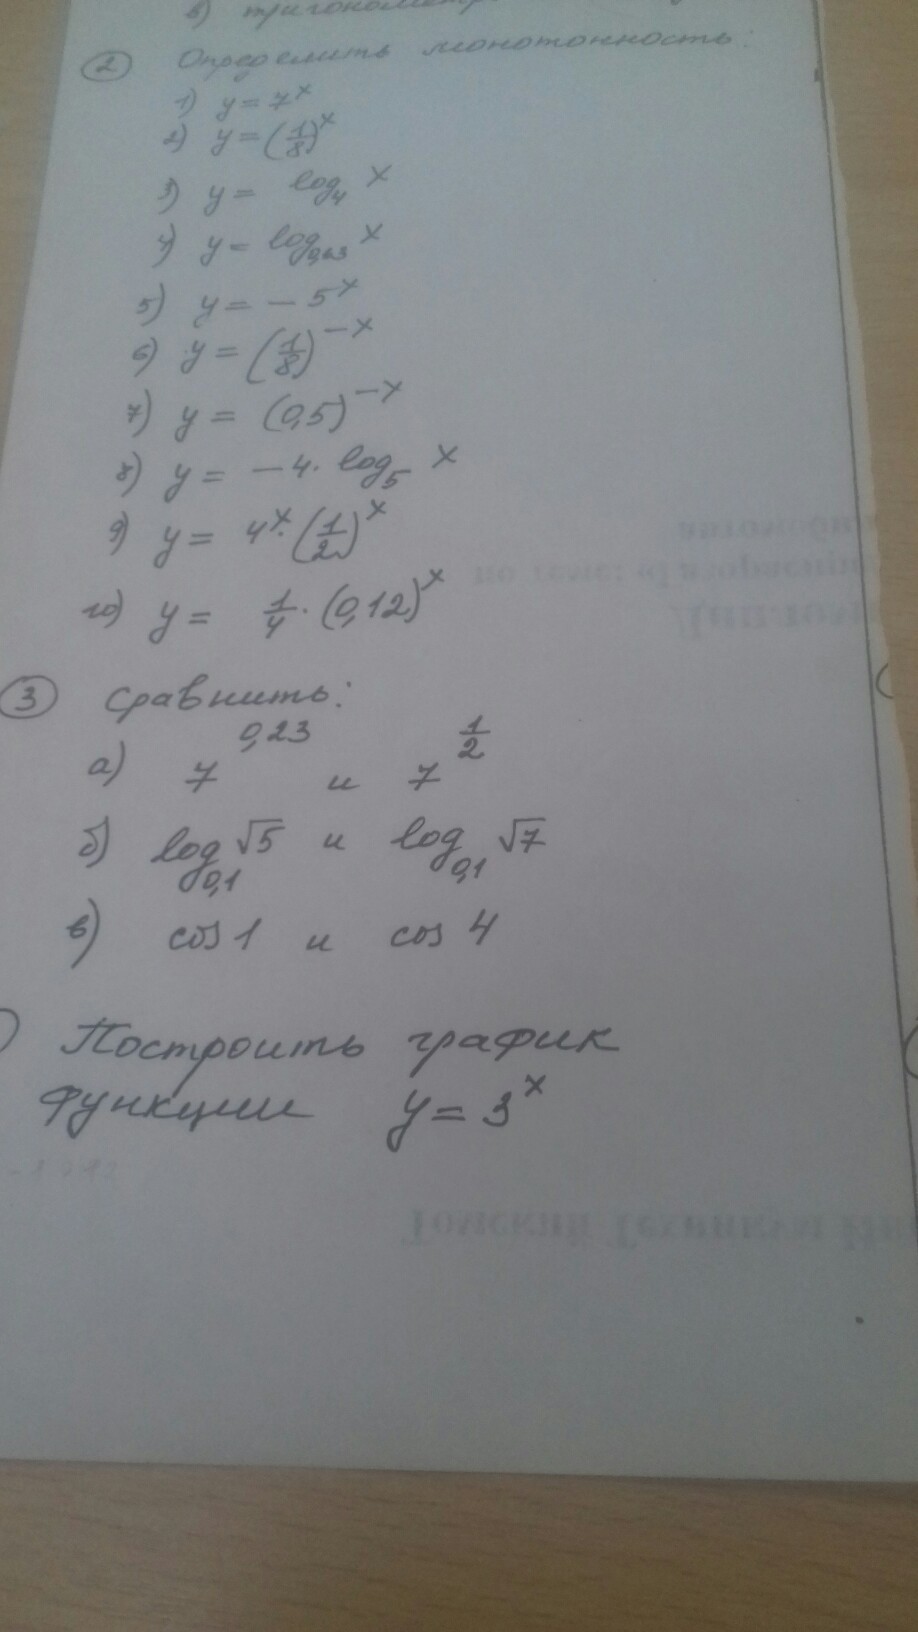 в) тригонометр
② Определить монотонность:
1) y = 7^x
2) y = (1/8)^x
3) y = log_4 x
4) y = log_0,63 x
5) y = – 5^x
6) y = (1/8)^–x
7) y = (0,5)^–x
8) y = – 4 · log_5 x
9) y = 4^x · (1/2)^x
10) y = 1/4 · (0,12)^x
③ Сравнить:
а) 7^0,23 и 7^1/2
б) log_0,1 √5 и log_0,1 √7
в) cos 1 и cos 4
Построить график
функции y = 3^x